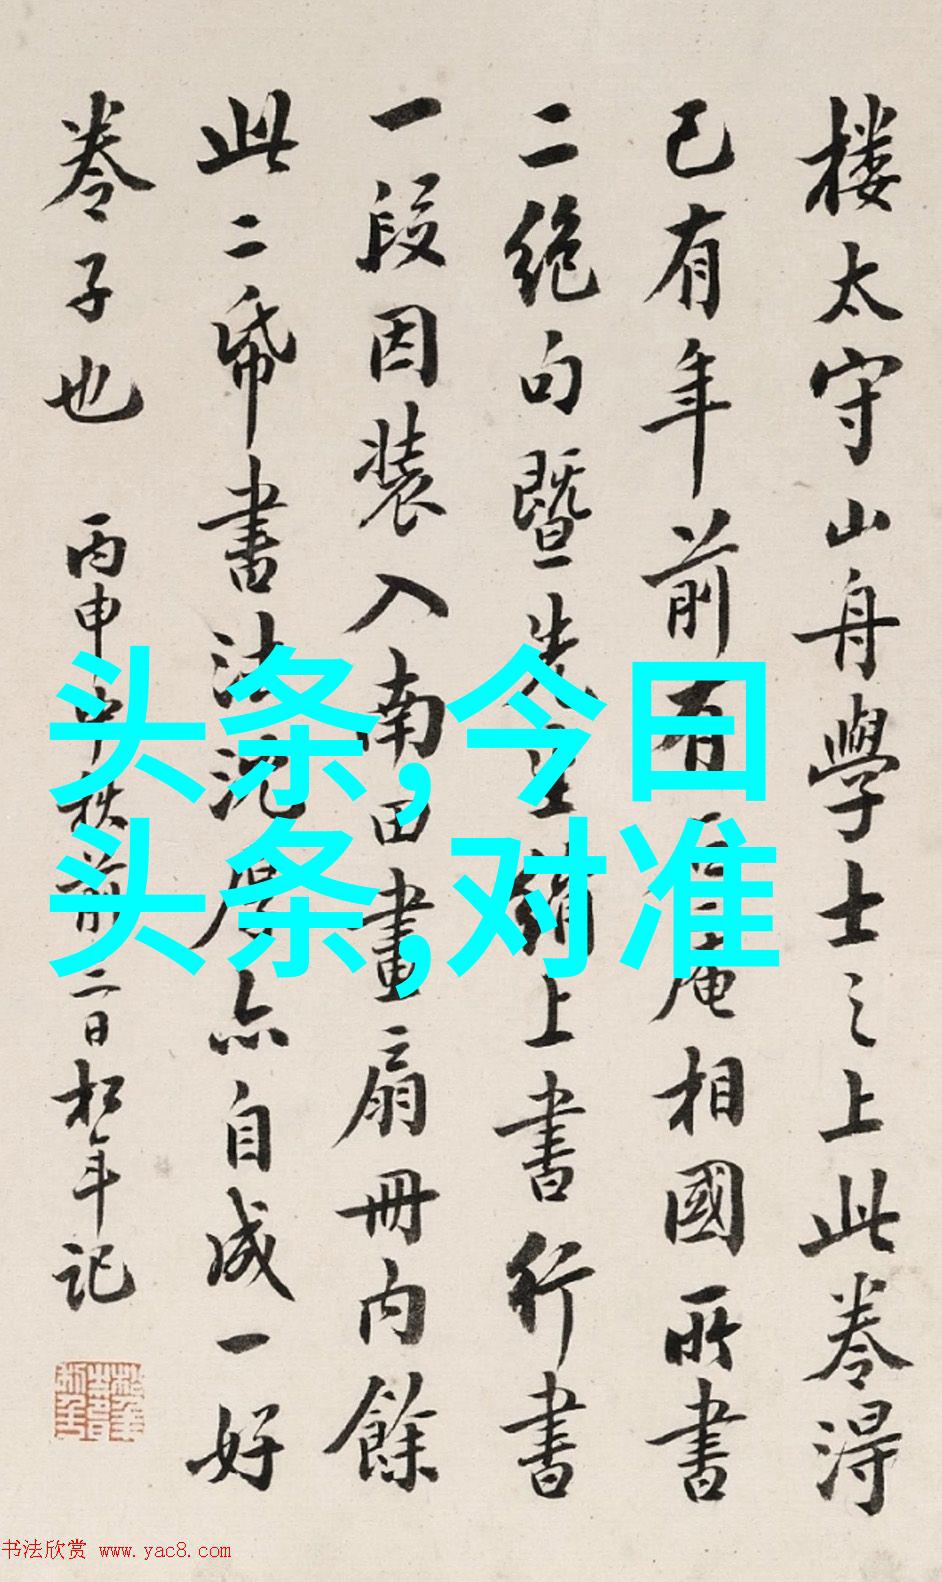 楼太守山舟學士之上此卷得
已有年前有 庵相國所書
二絕句暨先生 上書行書
一段因裝入南田畫扇冊内餘
此二帋書法沉厚亦自成一好
卷子也
丙申中秋前二日松年記
头条,今日
头条,对准
书法欣赏 www.yac8.com